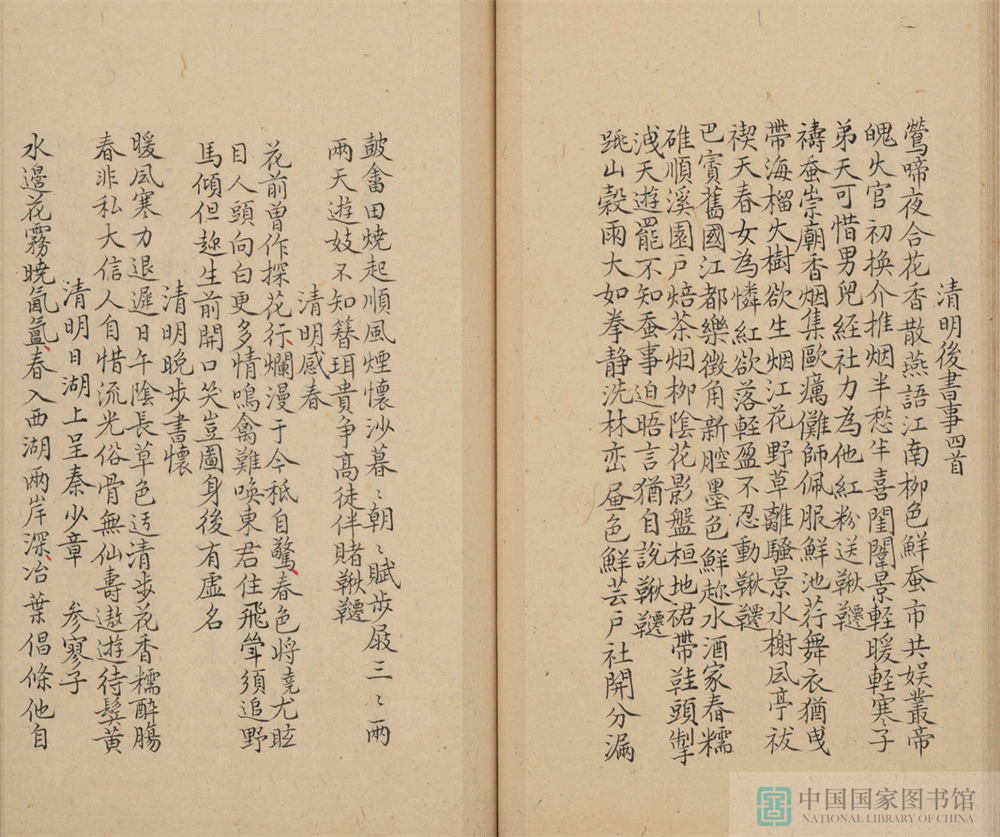 清明後書事四首
鶯啼夜合花香散燕語江南柳色鮮蚕市共娱叢帝
魄火官初换介推烟半愁半喜閨闈景輕暖輕寒子
弟天可惜男兒經社力為他紅粉送鞦韆
禱蚕崇廟香烟集歐癘儺師佩服鮮池荇舞衣猶曵
帶海榴火樹欲生烟江花野草離騷景水榭風亭祓
禊天春女為憐紅欲落輕盈不忍動鞦韆
巴賨舊國江都樂徵角新腔墨色鮮趂水酒家春糯
碓順溪園戸焙茶烟柳陰花影盤桓地裙帶鞋頭掣
洩天遊罷不知蚕事迫晤言猶自說鞦韆
跳山穀雨大如拳静洗林峦昼色鮮芸戸社開分漏
鼓畬田燒起順風煙懷沙暮〻朝〻賦步屐三〻兩
兩天遊妓不知簪珥貴争髙徒伴賭鞦韆
清明感春
花前曾作探花行爛漫于今秖自驚春色将堯尤眩
目人頭向白更多情鳴禽難喚東君住飛䇄須追野
馬傾但趂生前開口笑豈圖身後有虚名
清明晩步書懷
暖風寒力退遲日午陰長草色迓清步花香糯醉膓
春非私大信人自惜流光俗骨無仙壽遨遊待髮黄
清明日湖上呈秦少章 參寥子
水邉花霧曉氤氳春入西湖兩岸深冶葉倡條他自
中国国家图书馆
NATIONAL LIBRARY OF CHINA